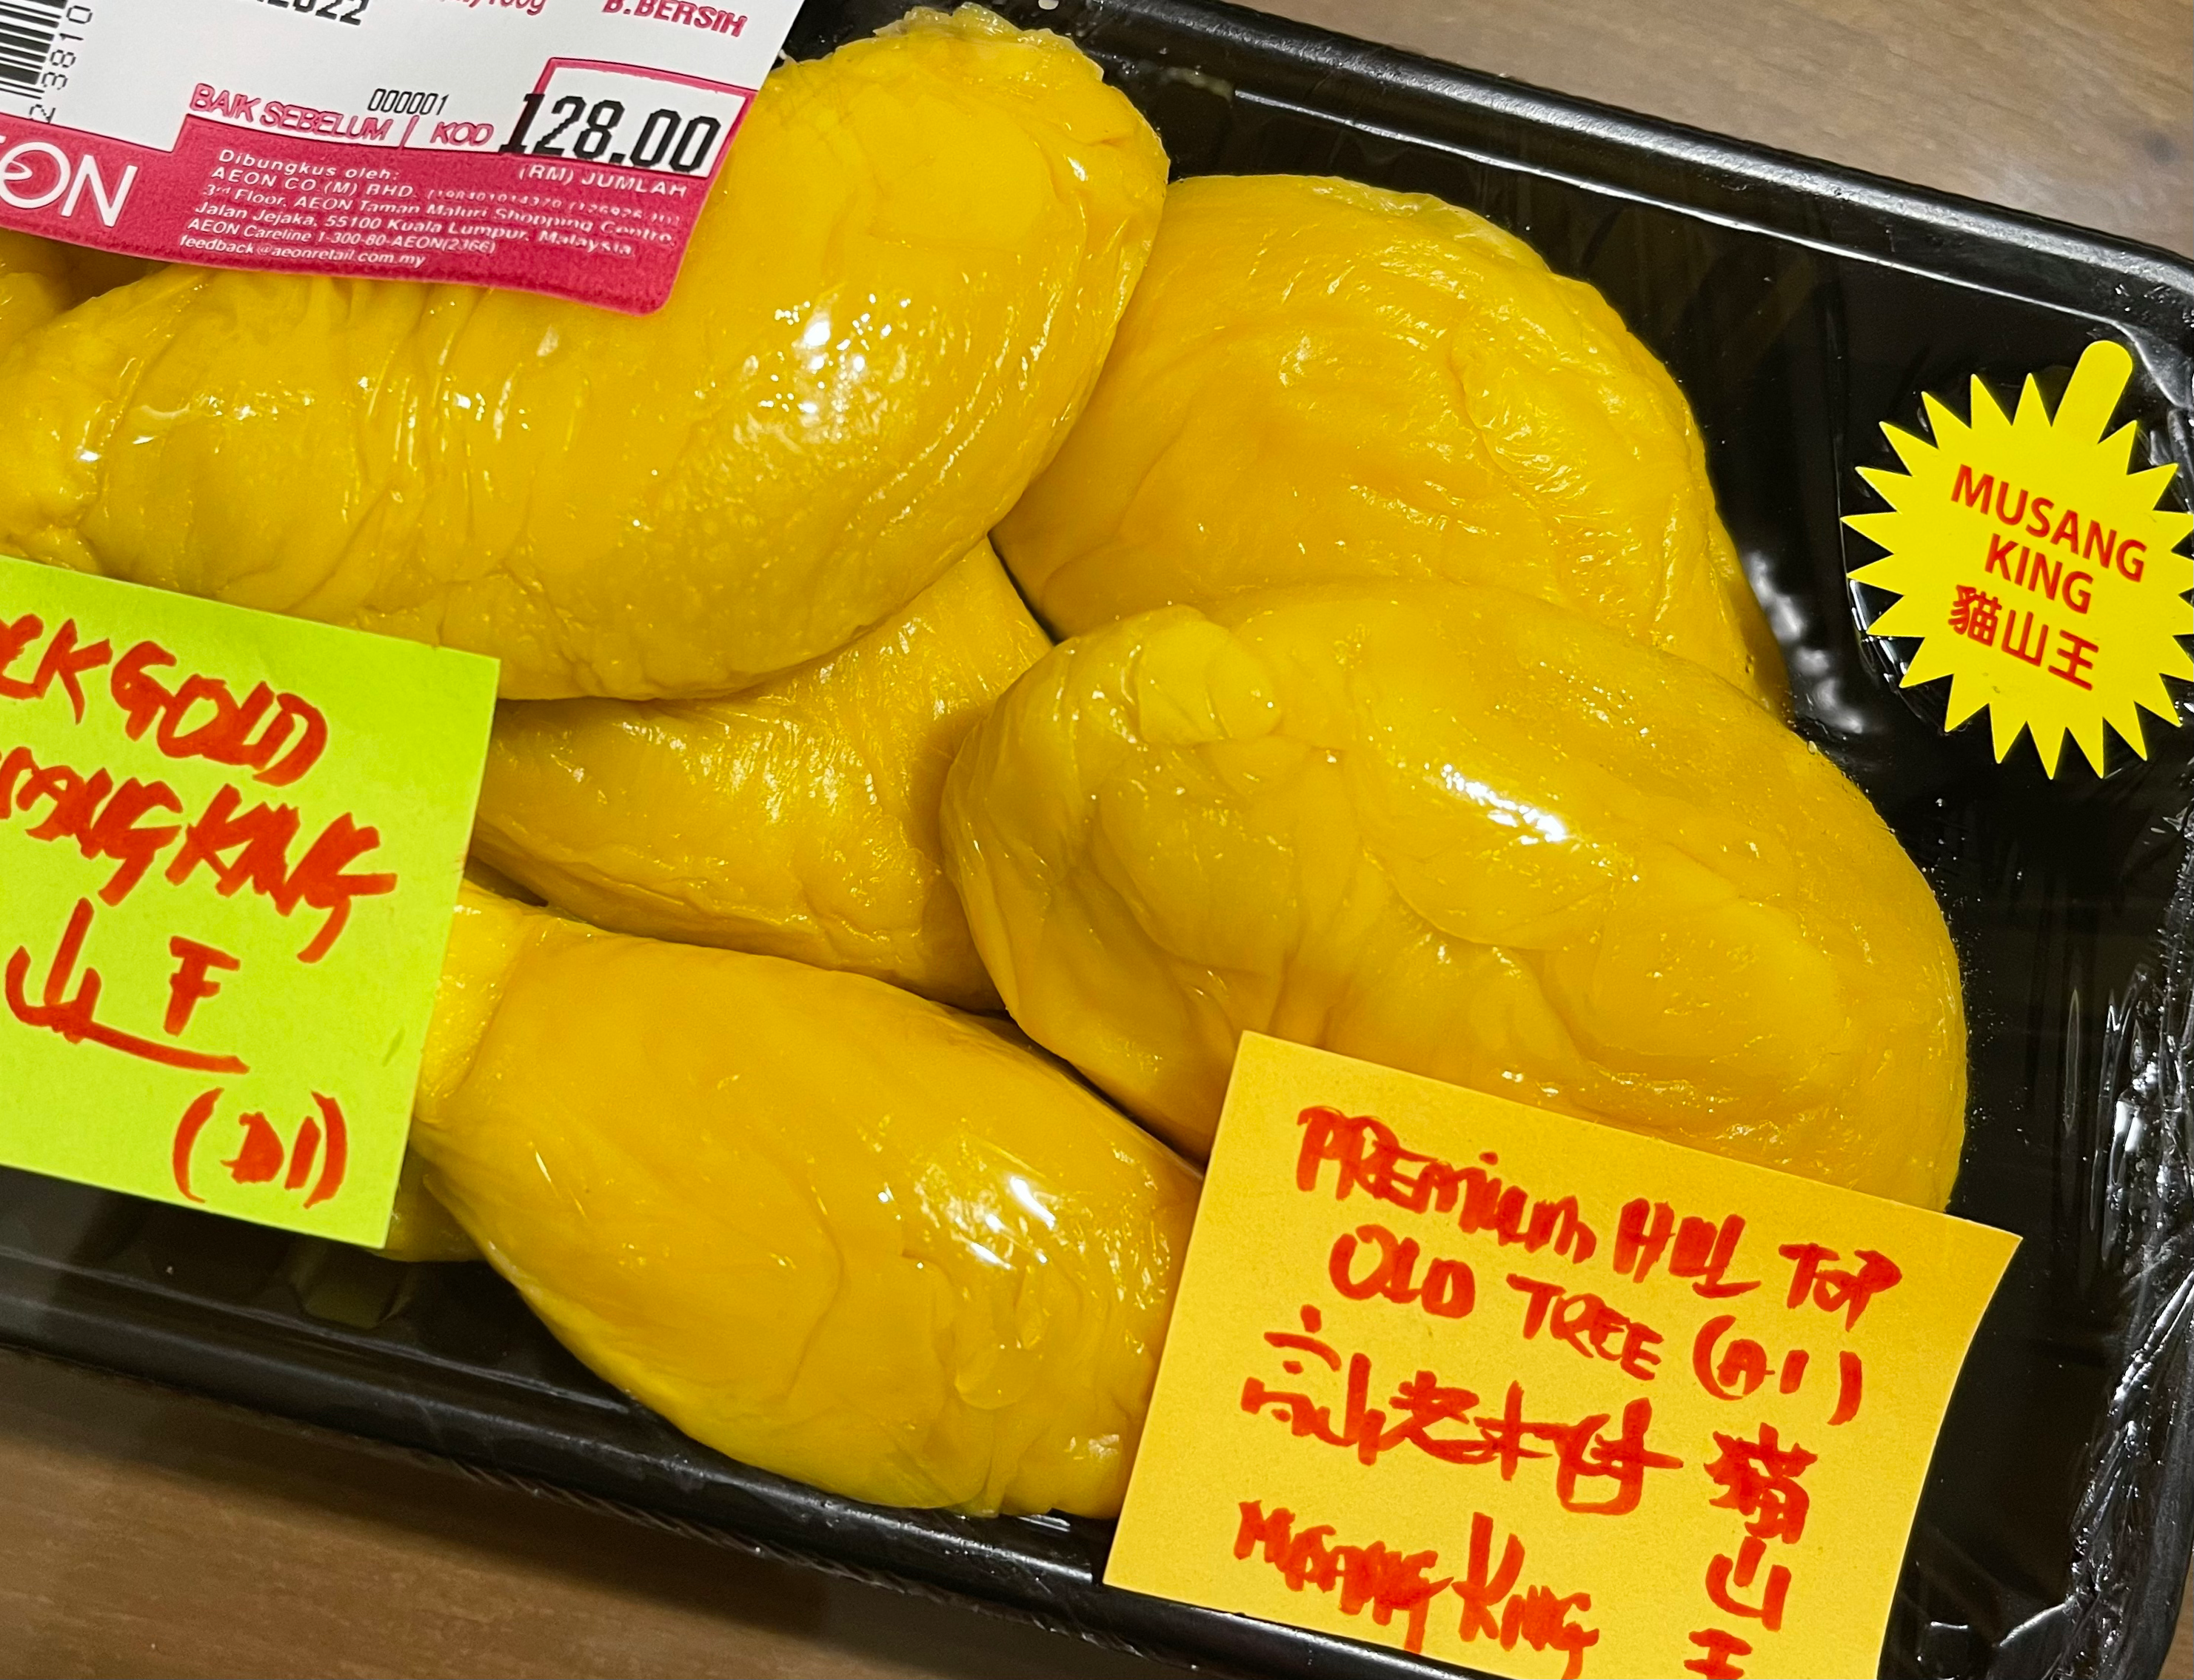 B.BERSIH
000001
BAIK SEBELUM | KOD
128.00
(RM) JUMLAH
Dibungkus oleh:
AEON CO (M) BHD.
3rd Floor, AEON Taman Maluri Shopping Centre,
Jalan Jejaka, 55100 Kuala Lumpur, Malaysia
AEON Careline 1-300-80-AEON(2366)
feedback@aeonretail.com.my
MUSANG
KING
貓山王
GOLD
KING
山王
(D1)
PREMIUM HILL TOP
OLD TREE (A1)
老
猫山王
MUSANG KING